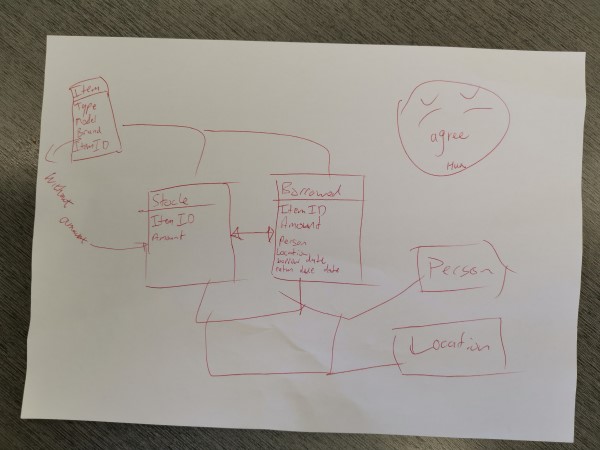 Item
Type
Model
Brand
ItemID
Without
amount
Stock
Item ID
Amount
Borrowed
Item ID
Amount
Person
Location
borrow date
return date
agree
Person
Location